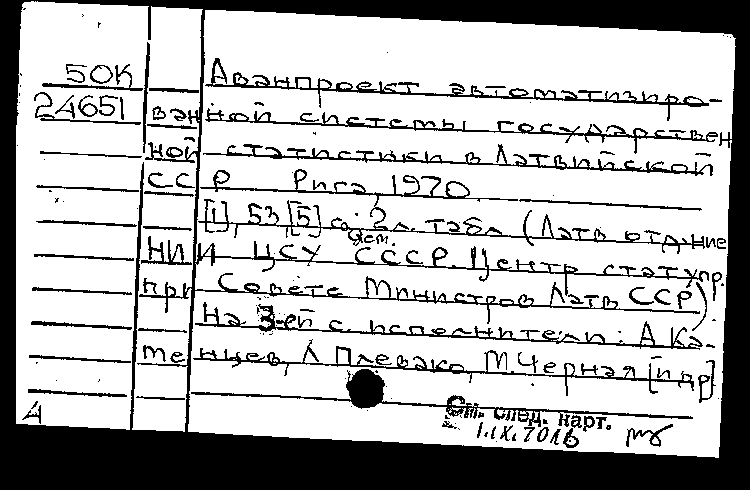 50К Аванпроект автоматизиро-
24651 ванной системы государствен
ной статистики в Латвийской
ССР Рига, 1970.
[1], 53 [5] с; 2 л. табл (Латв отд-ние
НИИ ЦСУ СССР. Центр стат упр.
при Совете Министров Латв ССР)
На 3-ей с исполнители: А Ка-
менцев, Л Плевако, М. Черная [и др]
См. спец. карт.
1.IX.70